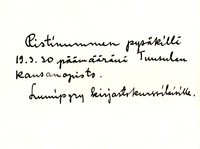 Ristinummen pysäkillä
19.3.30 päämääränä Tuusulan
kansanopisto.
Lumippy kirjastokurssilaisille.